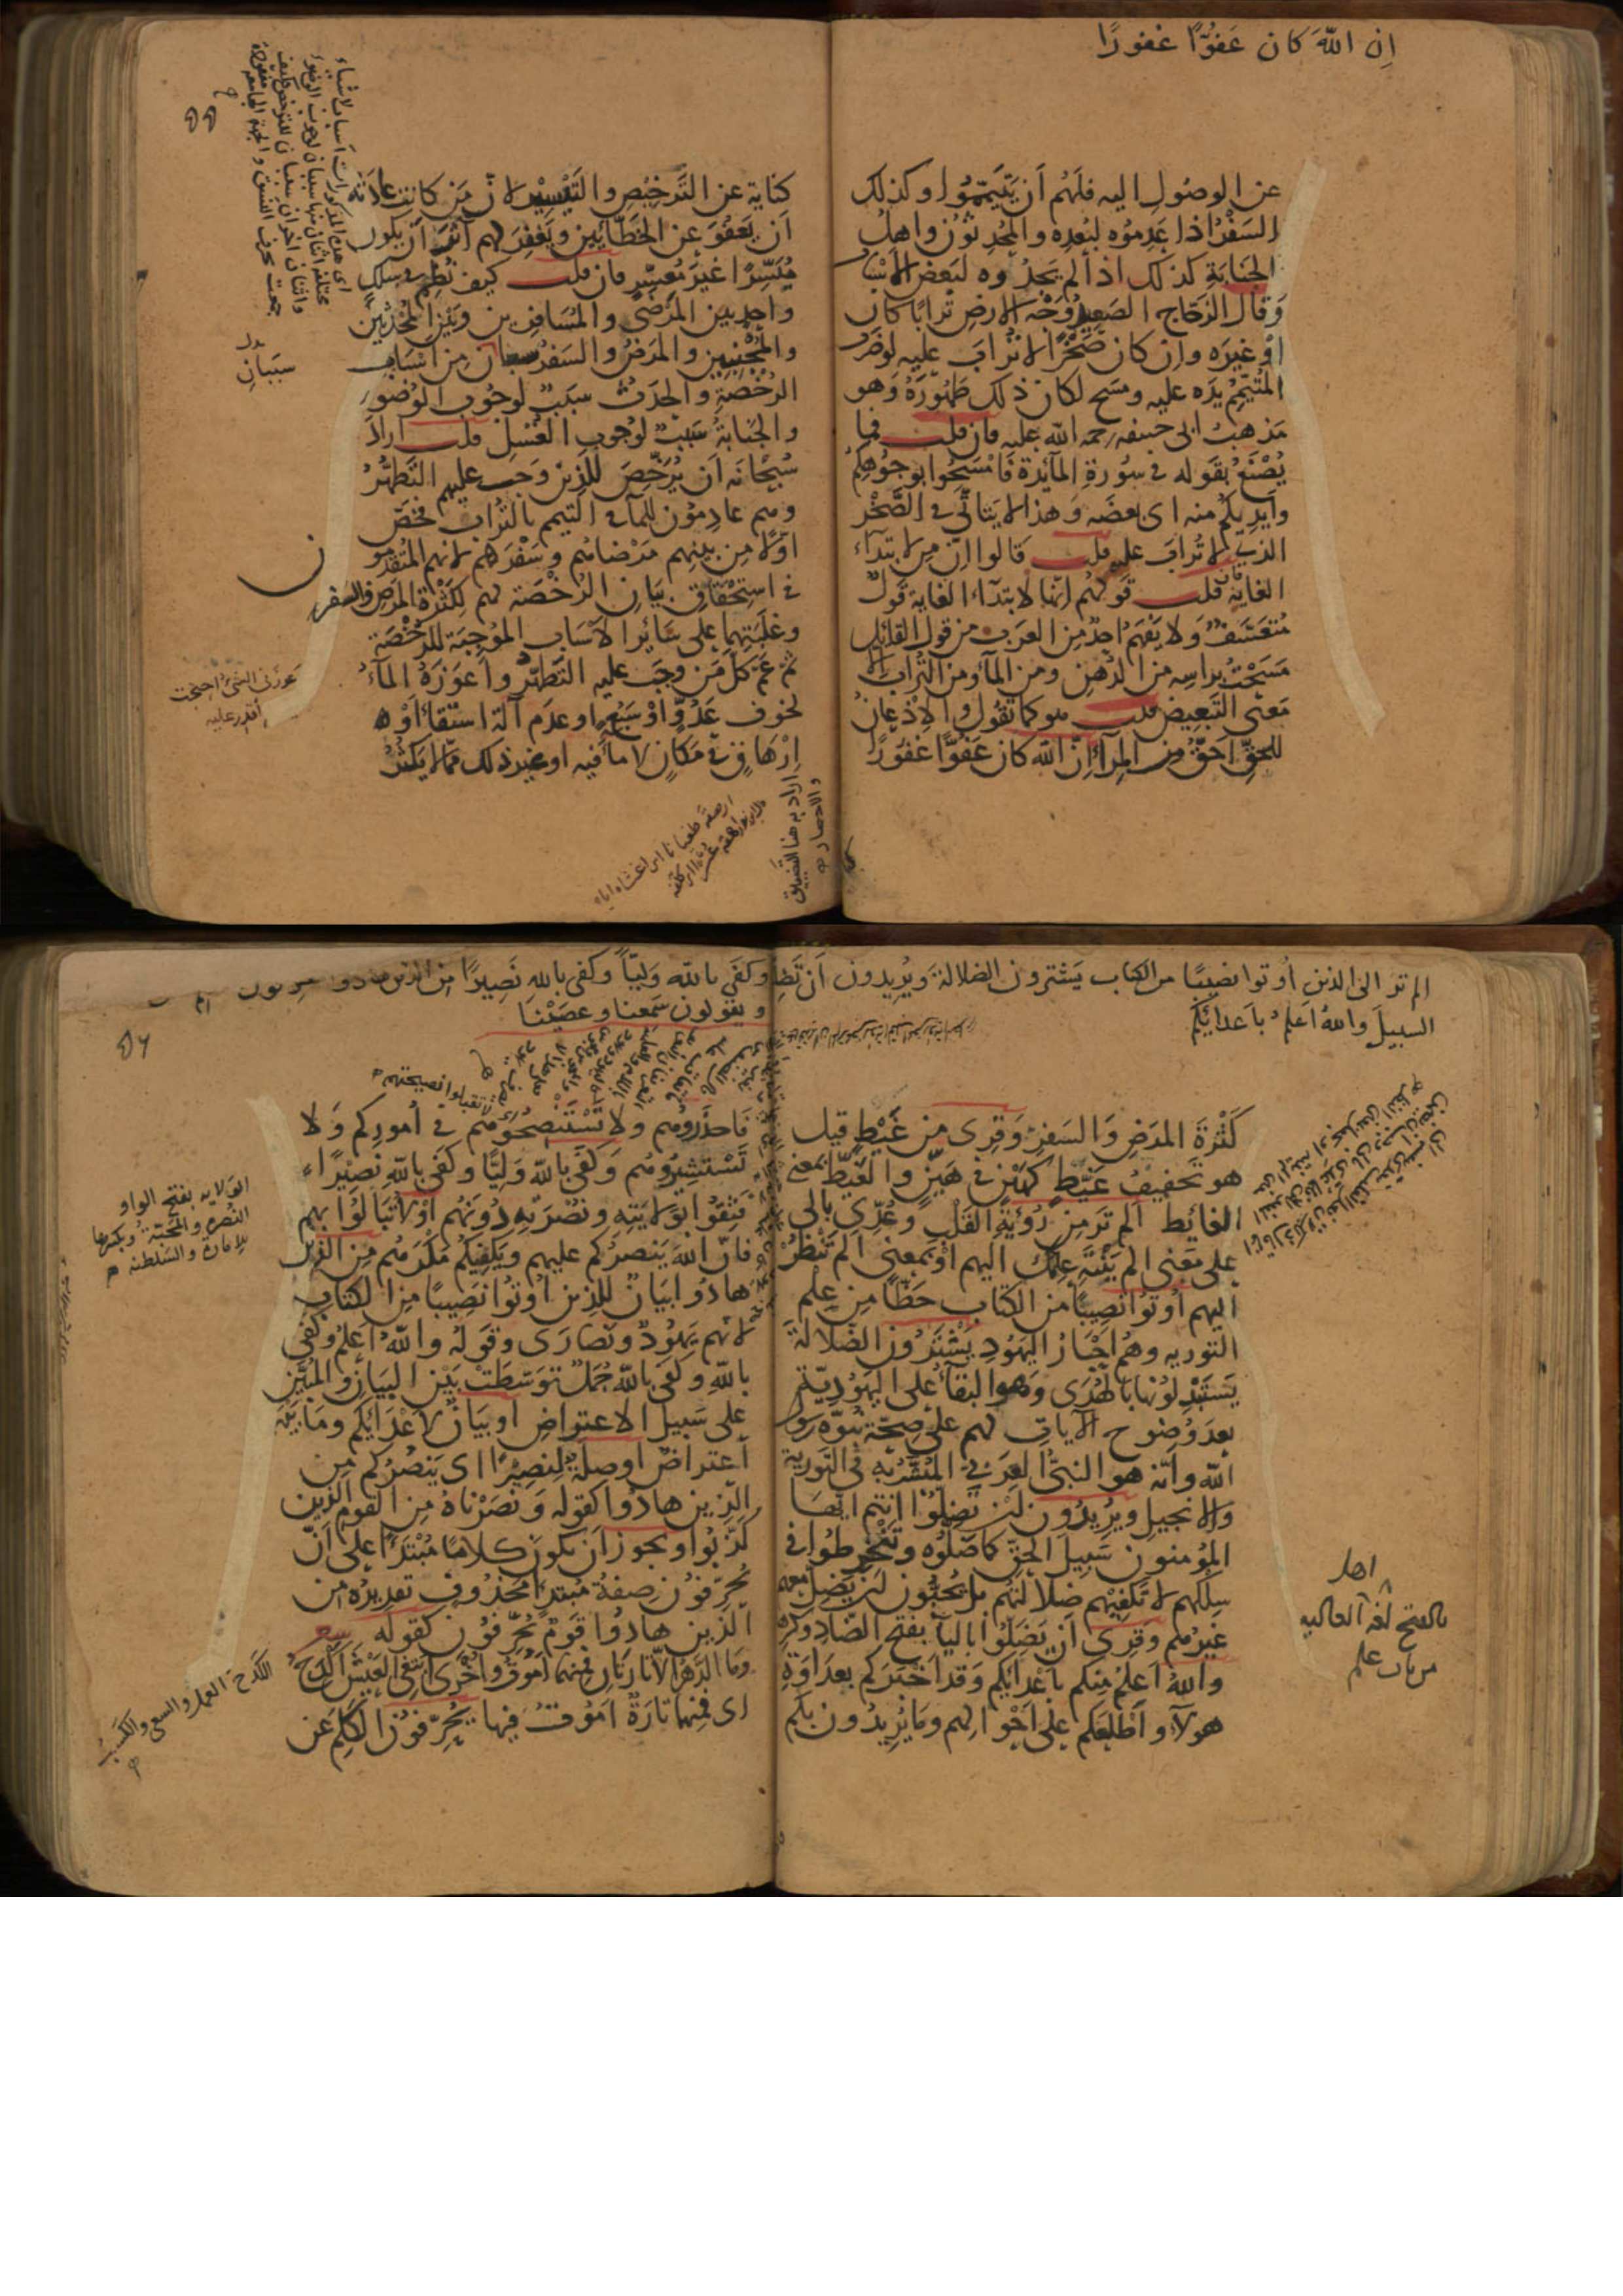 إن الله كان عفوًّا غفورًا
عن الوصول اليه فلهم أن يتيمموا وكذلك
السفر اذا عدموه لبعده والمحدثون واهل
الجنابة كذلك اذا لم يجدوه لبعض الاسباب
وقال الزجاج الصعيد وجه الارض ترابا كان
او غيره وان كان صخرًا لا تراب عليه لو ضرب
المتيمم يده عليه ومسح لكان ذلك طهوره وهو
مذهب ابى حنيفه رحمه الله عليه فان قلت فما
يصنع بقوله فى سورة المائدة فامسحوا بوجوهكم
وايديكم منه اى بعضه وهذا لا يتاتى فى الصخر
الذى لا تراب عليه قلت قالوا ان من لابتداء
الغاية فان قلت قولهم انها لابتداء الغاية قول
متعسف ولا يفهم احد من العرب من قول القائل
مسحت براسه من الدهن ومن الماء ومن التراب الا
معنى التبعيض قلت هو كما تقول والاذعان
للحق احق من المراء إن الله كان عفوًّا غفورًا
كناية عن الترخيص والتيسير لان من كانت عادته
أن يعفو عن الخطائين ويغفر لهم آثر أن يكون
ميسرًا غير معسر فان قلت كيف نظم فى سلك
واحد بين المرضى والمسافرين وبين المحدثين
والمجنبين والمرض والسفر سببان من اسباب
الرخصة والحدث سبب لوجوب الوضوء
والجنابة سبب لوجوب الغسل قلت اراد
سبحانه أن يرخص للذين وجب عليهم التطهر
وهم عادمون للماء فى التيمم بالتراب فخص
اولا من بينهم مرضاهم وسفرهم لانهم المتقدمون
فى استحقاق بيان الرخصة لهم لكثرة المرض والسفر
وغلبتهما على سائر الاسباب الموجبة للرخصة
ثم عم كل من وجب عليه التطهر واعوزه الماء
لخوف عدو او سبع او عدم آلة استقاء او
إرهاق فى مكان لا ماء فيه او غير ذلك مما لا يكثر
سببان
عوزنى الشئ احتجت
اقدر عليه
اراد به هنا التضييق
والاحصار
الم تر الى الذين أوتوا نصيبًا من الكتاب يشترون الضلالة ويريدون أن تضلوا
السبيل والله أعلم باعدائكم
كثرة المرض والسفر وقرئ من غيط قيل
هو تخفيف غيّط كهين فى هيّن والغيط بمعنى
الغائط ألم تر من رؤية القلب وعدى بالى
على معنى الم ينته علمك اليهم او بمعنى الم تنظر
اليهم أوتوا نصيبًا من الكتاب حظًّا من علم
التورية وهم احبار اليهود يشترون الضلالة
يستبدلونها بالهدى وهو البقاء على اليهودية
بعد وضوح الآيات لهم على صحة نبوة رسول
الله وأنه هو النبى العربى المبشر به فى التورية
والانجيل ويريدون ان تضلوا انتم ايها
المؤمنون سبيل الحق كما ضلوه وتنخرطوا فى
سلكهم لا تكفيهم ضلالتهم بل يحبون ان يضل معهم
غيرهم وقرئ ان يضلوا بالياء بفتح الضاد وكسرها
والله اعلم منكم باعدائكم وقد اخبركم بعداوة
هولاء واطلعكم على احوالهم وما يريدون بكم
اهل
بالفتح لغة العالية
من باب علم
وكفى بالله وليّاً وكفى بالله نصيرًا من الذين هادوا
ويقولون سمعنا وعصينا
فاحذروهم ولا تستنصحوهم فى أموركم ولا
تستشيروهم وكفى بالله وليًّا وكفى بالله نصيرًا
فثقوا بولايته ونصرته دونهم او لا تبالوا بهم
فان الله ينصركم عليهم ويكفيكم مكرهم من الذين
هادوا بيان للذين اوتوا نصيبًا من الكتاب
لانهم يهود ونصارى وقوله والله اعلم وكفى
بالله وكفى بالله جمل توسطت بين البيان والمبين
على سبيل الاعتراض او بيان لاعدائكم وما بينهما
اعتراض او صلة لنصيرًا اى ينصركم من
الذين هادوا كقوله ونصرناه من القوم الذين
كذبوا ويجوز أن يكون كلامًا مبتدأ على أنّ
يحرفون صفة مبتدأ محذوف تقديره من
الذين هادوا قوم يحرفون كقوله شعر
وما الدهر الا تارتان فمنهما اموت واخرى ابتغى العيش اكدح
اى فمنهما تارة اموت فيها يحرفون الكلم عن
الولاية بفتح الواو
النصرة والمحبة وبكسرها
الامارة والسلطنة
الكدح العمل والسعى والكسب